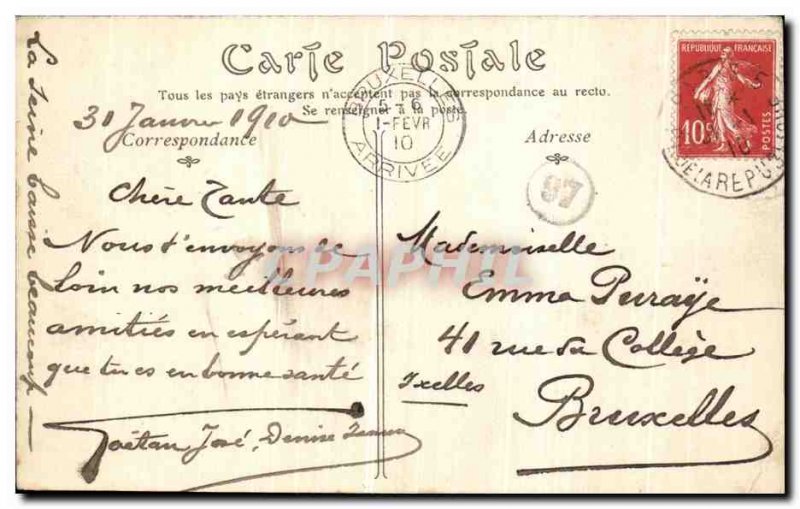 Carte Postale
Tous les pays étrangers n'acceptent pas la correspondance au recto.
Se renseigner à la poste.
31 Janvier 1910
Correspondance
Chère Tante
Nous t'envoyons de
loin nos meilleures
amitiés en espérant
que tu es en bonne santé
Gaëtan José, Denise
La Seine baisse beaucoup
BRUXELLES
5-6
1-FEVR
10
ARRIVEE
Adresse
97
Mademoiselle
Emma
41 rue du Collège
Ixelles
Bruxelles
REPUBLIQUE FRANÇAISE
10c
POSTES
CPAPHIL